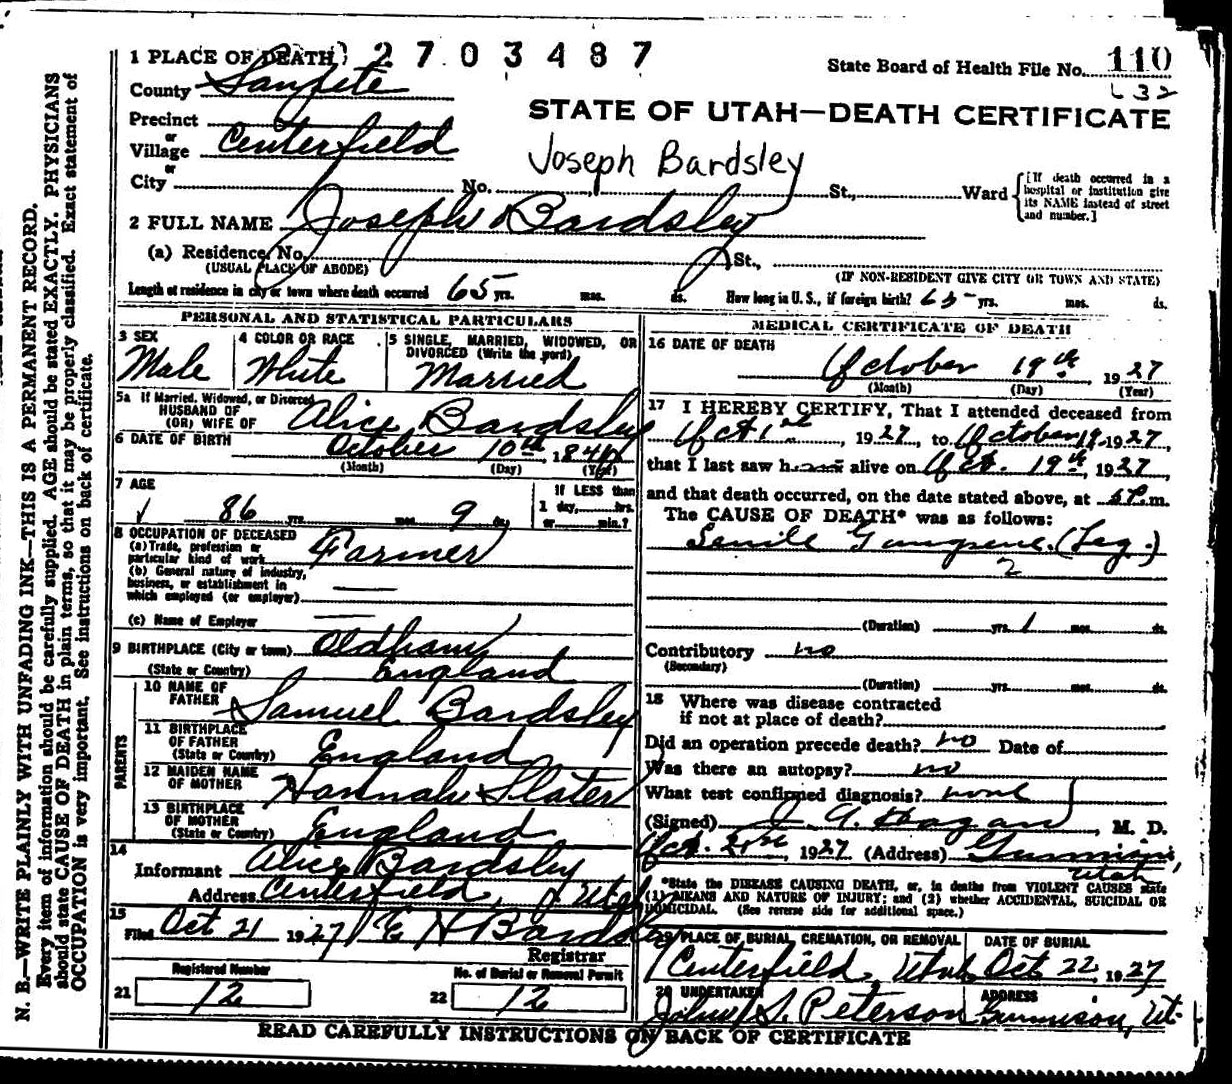 N. B.—WRITE PLAINLY WITH UNFADING INK—THIS IS A PERMANENT RECORD.
Every item of information should be carefully supplied. AGE should be stated EXACTLY. PHYSICIANS
should state CAUSE OF DEATH in plain terms, so that it may be properly classified. Exact statement of
OCCUPATION is very important. See instructions on back of certificate.
1 PLACE OF DEATH 2703487
State Board of Health File No. 110
632
County Sanpete
STATE OF UTAH—DEATH CERTIFICATE
Precinct
or
Village Centerfield
Joseph Bardsley
or
City No. St., Ward
[If death occurred in a
hospital or institution give
its NAME instead of street
and number.]
2 FULL NAME Joseph Bardsley
(a) Residence, No. St.,
(USUAL PLACE OF ABODE) (IF NON-RESIDENT GIVE CITY OR TOWN AND STATE)
Length of residence in city or town where death occurred 65 yrs. mos. ds. How long in U. S., if foreign birth? 65 yrs. mos. ds.
PERSONAL AND STATISTICAL PARTICULARS
3 SEX 4 COLOR OR RACE 5 SINGLE, MARRIED, WIDOWED, OR
DIVORCED (Write the word)
Male White Married
5a If Married, Widowed, or Divorced
HUSBAND OF
(OR) WIFE OF Alice Bardsley
6 DATE OF BIRTH October 10th
(Month) (Day) (Year)
7 AGE 86 yrs. mos. 9 ds.
If LESS than
1 day, hrs.
or min.?
8 OCCUPATION OF DECEASED
(a) Trade, profession or
particular kind of work Farmer
(b) General nature of industry,
business, or establishment in
which employed (or employer)
(c) Name of Employer
9 BIRTHPLACE (City or town) Oldham
(State or Country) England
PARENTS
10 NAME OF
FATHER Samuel Bardsley
11 BIRTHPLACE
OF FATHER
(State or Country) England
12 MAIDEN NAME
OF MOTHER Hannah Slater
13 BIRTHPLACE
OF MOTHER
(State or Country) England
14
Informant Alice Bardsley
Address Centerfield, Utah
15
Filed Oct 21 1927 E H Bardsley
Registrar
Registered Number No. of Burial or Removal Permit
21 12 22 12
MEDICAL CERTIFICATE OF DEATH
16 DATE OF DEATH
October 19th 1927
(Month) (Day) (Year)
17 I HEREBY CERTIFY, That I attended deceased from
Oct 1st, 1927, to October 19, 1927,
that I last saw h alive on Oct. 19th, 1927
and that death occurred, on the date stated above, at 5 P. m.
The CAUSE OF DEATH* was as follows:
Senile Gangrene. (Leg.)
2
(Duration) yrs. 1 mos. ds.
Contributory no
(Secondary)
(Duration) yrs. mos. ds.
18 Where was disease contracted
if not at place of death?
Did an operation precede death? no Date of
Was there an autopsy? no
What test confirmed diagnosis? none
(Signed) J. A. Hagan, M. D.
Oct. 21st, 1927 (Address) Gunnison,
Utah
*State the DISEASE CAUSING DEATH, or, in deaths from VIOLENT CAUSES state
(1) MEANS AND NATURE OF INJURY; and (2) whether ACCIDENTAL, SUICIDAL OR
HOMICIDAL. (See reverse side for additional space.)
19 PLACE OF BURIAL, CREMATION, OR REMOVAL DATE OF BURIAL
Centerfield, Utah Oct 22, 1927
20 UNDERTAKER ADDRESS
S. Peterson Gunnison, Ut.
READ CAREFULLY INSTRUCTIONS ON BACK OF CERTIFICATE